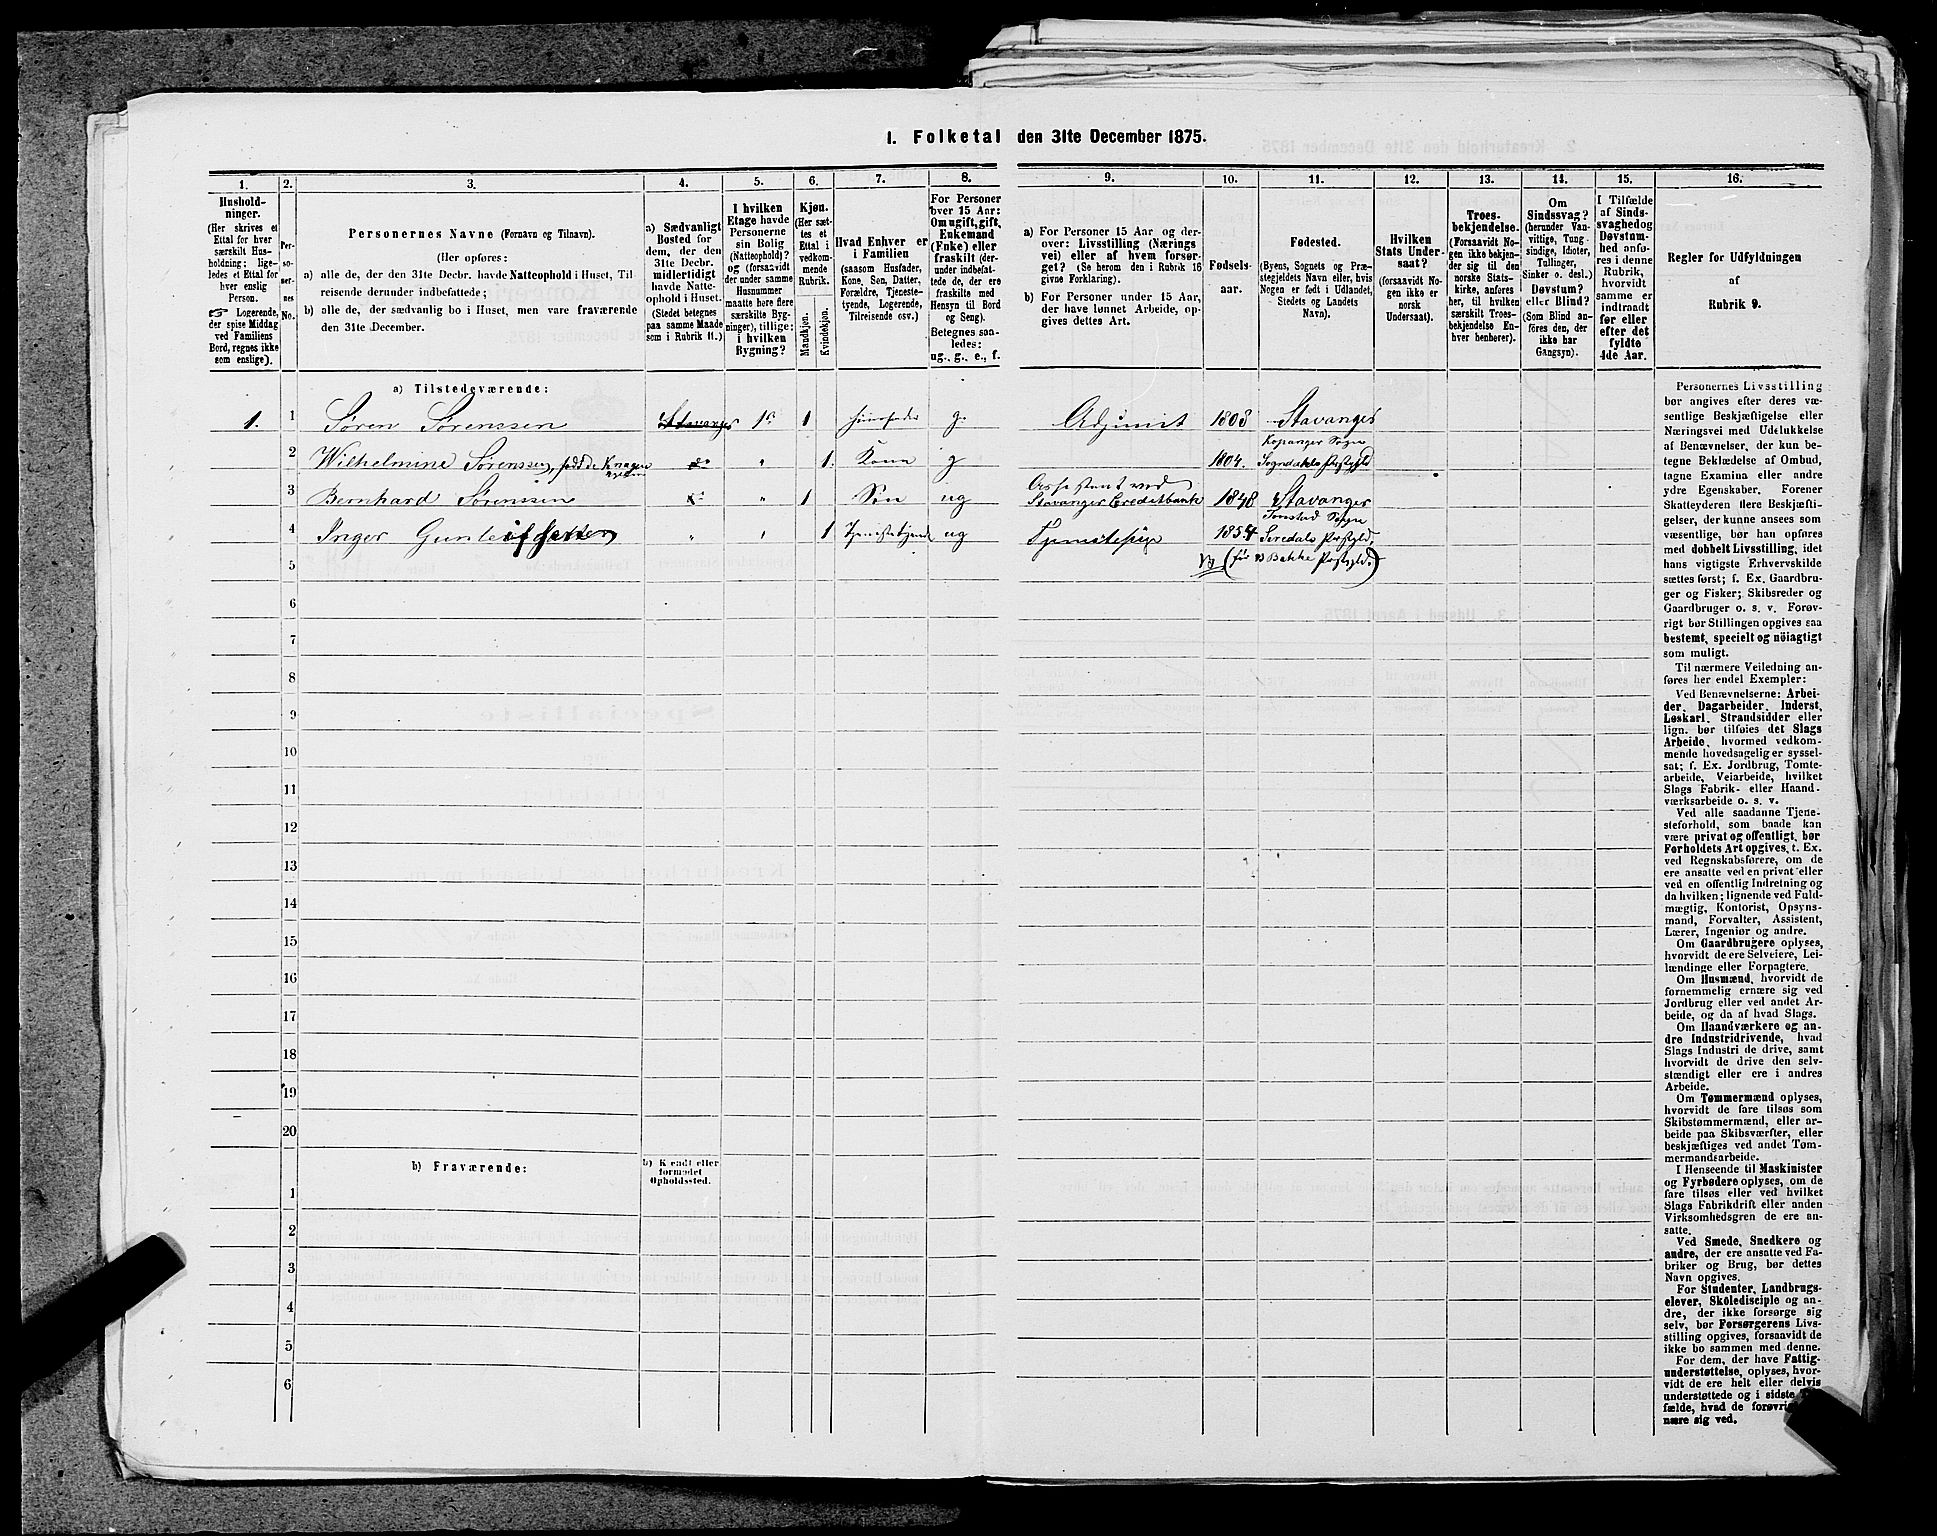 1. Folketal den 31te December 1875.
1. 2. 3. 4. 5. 6. 7. 8. 9. 10. 11. 12. 13. 14. 15. 16.
Hushold-
ninger.
(Her skrives et
Ettal for hver
særskilt Hus-
holdning; lige-
ledes et Ettal for
hver enslig
Person.
☞ Logerende,
der spise Middag
ved Familiens
Bord, regnes ikke
som enslige).
Per-
so-
ner-
nes
No.
Personernes Navne (Fornavn og Tilnavn).
(Her opføres:
a) alle de, der den 31te Decbr. havde Natteophold i Huset, Til-
reisende derunder indbefattede;
b) alle de, der sædvanlig bo i Huset, men vare fraværende
den 31te December.
a) Sædvanligt
Bosted for
dem, der den
31te Decbr.
midlertidigt
havde Natte-
ophold i Huset.
(Stedet betegnes
paa samme Maade
som i Rubrik 11.)
I hvilken
Etage havde
Personerne
sin Bolig
(Natteophold)?
og (forsaavidt
der under samme
Husnummer
maatte høre flere
særskilte Byg-
ninger), tillige:
i hvilken
Bygning?
Kjøn.
(Her sæt-
tes et
Ettal i
vedkom-
mende
Rubrik.
Mandkjøn.
Kvindekjøn.
Hvad Enhver er
i Familien
(saasom Husfader,
Kone, Søn, Datter,
Forældre, Tjeneste-
tyende, Logerende,
Tilreisende osv.)
For Personer
over 15 Aar:
Om ugift, gift,
Enkemand
(Enke) eller
fraskilt (der-
under indbefat-
tede de, der ere
fraskilte med
Hensyn til Bord
og Seng).
Betegnes saa-
ledes:
ug., g., e., f.
a) For Personer 15 Aar og der-
over: Livsstilling (Nærings
vei) eller af hvem forsør-
get? (Se herom den i Rubrik 16
givne Forklaring).
b) For Personer under 15 Aar,
der have lønnet Arbeide, op-
gives dettes Art.
Fødsels-
aar.
Fødested.
(Byens, Sognets og Præ-
stegjeldets Navn eller, hvis
Nogen er født i Udlandet,
Stedets og Landets
Navn).
Hvilken
Stats Under-
saat?
(forsaavidt No-
gen ikke er
norsk
Undersaat).
Troes-
bekjendelse.
(Forsaavidt No-
gen ikke bekjen-
der sig til den
norske Stats-
kirke, anføres
her, til hvilken
særskilt Troes-
bekjendelse En-
hver henhører).
Om
Sindssvag?
(herunder Van-
vittige, Tung-
sindige, Idioter,
Tullinger,
Sinker o. desl.)
Døvstum?
eller Blind?
(Som Blind an-
føres den, der
ikke har
Gangsyn).
I Tilfælde
af Sinds-
svaghed og
Døvstum-
hed anfø-
res i denne
Rubrik,
hvorvidt
samme er
indtraadt
før eller
efter det
fyldte
4de Aar.
Regler for Udfyldningen
af
Rubrik 9.
a) Tilstedeværende:
1. 1 Søren Sørenssen Stavanger 1ste 1 Huusfader g. Adjunct 1803 Stavanger
2 Wilhelmine Sørenssen, født de Knagen do " 1. Kone g 1804. Kopanger Sogn
Sogndals Præstgjeld
3 Bernhard Sørenssen " 1 Søn ug Assistent ved
Stavanger Creditbank 1848 Stavanger
4 Inger " " 1 ug Tjenestepige 1854 Tonstad Sogn
Siredals Præstgjeld,
5 (før Bakke Præstgjeld.)
6
7
8
9
10
11
12
13
14
15
16
17
18
19
20
b) Fraværende:
b) Kjendt eller
formodet
Opholdssted.
1
2
3
4
5
6
Personernes Livsstilling
bør angives efter deres væ-
sentlige Beskjæftigelse eller
Næringsvei med Udelukkelse
af Benævnelser, der kun be-
tegne Beklædelse af Ombud,
tagne Examina eller andre
ydre Egenskaber. Forener
Skatteyderen flere Beskjæfti-
gelser, der kunne ansees som
væsentlige, bør han opføres
med dobbelt Livsstilling, idet
hans vigtigste Erhvervskilde
sættes først; f. Ex. Gaardbru-
ger og Fisker; Skibsreder og
Gaardbruger o. s. v. Forøv-
rigt bør Stillingen opgives saa
bestemt, specielt og nöiagtigt
som muligt.
Til nærmere Veiledning an-
føres her endel Exempler:
Ved Benævnelserne: Arbei-
der, Dagarbeider, Inderst,
Løskarl, Strandsidder eller
lign. bør tilføies det Slags
Arbeide, hvormed vedkom-
mende hovedsagelig er syssel-
sat; f. Ex. Jordbrug, Tomte-
arbeide, Veiarbeide, hvilket
Slags Fabrik- eller Haand-
værksarbeide o. s. v.
Ved alle saadanne Tjene-
steforhold, som baade kan
være privat og offentligt, bør
Forholdets Art opgives, t. Ex.
ved Regnskabsførere, om de
ere ansatte ved en privat eller
ved en offentlig Indretning og
da hvilken; lignende ved Fuld-
mægtig, Kontorist, Opsyns-
mand, Forvalter, Assistent,
Lærer, Ingeniør og andre.
Om Gaardbrugere oplyses,
hvorvidt de ere Selveiere, Lei-
lændinge eller Forpagtere.
Om Husmænd, hvorvidt de
fornemmelig ernære sig ved
Jordbrug eller ved andet Ar-
beide, og da af hvad Slags.
Om Haandværkere og an-
dre Industridrivende, hvad
Slags Industri de drive, samt
hvorvidt de drive den selv-
stændigt eller ere i andres
Arbeide.
Om Tømmermænd oplyses,
hvorvidt de fare tilsøs som
Skibstømmermænd, eller ar-
beide paa Skibsværfter, eller
beskjæftiges ved andet Tøm-
mermandsarbeide.
I Henseende til Maskinister
og Fyrbødere oplyses, om de
fare tilsøs eller ved hvilket
Slags Fabrikdrift eller anden
Virksomhedsgren de ere an-
satte.
Ved Smede, Snedkere og
andre, der ere ansatte ved Fa-
briker og Brug, bør dettes
Navn opgives.
For Studenter, Landbrugs-
elever, Skoledisciple og an-
dre, der ikke forsørge sig
selv, bør Forsørgerens Livs-
stilling opgives, forsaavidt de
ikke bo sammen med denne.
For dem, der have Fattig-
understøttelse, oplyses, hvor-
vidt de ere helt eller delvis
understøttede og i sidste
fælde, hvad de forøvri
nære sig ved.